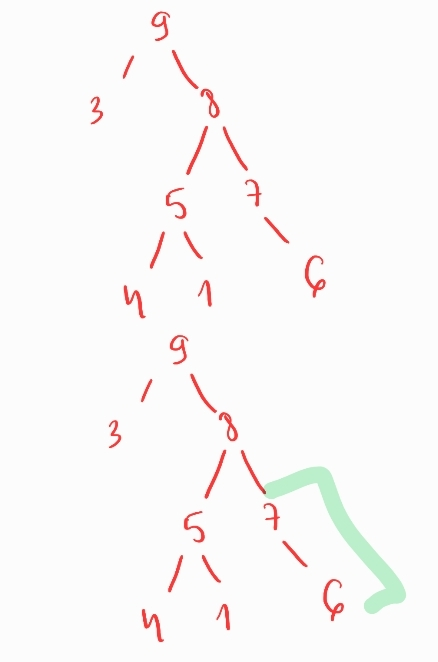 9
3 8
5 7
4 1 6
9
3 8
5 7
4 1 6